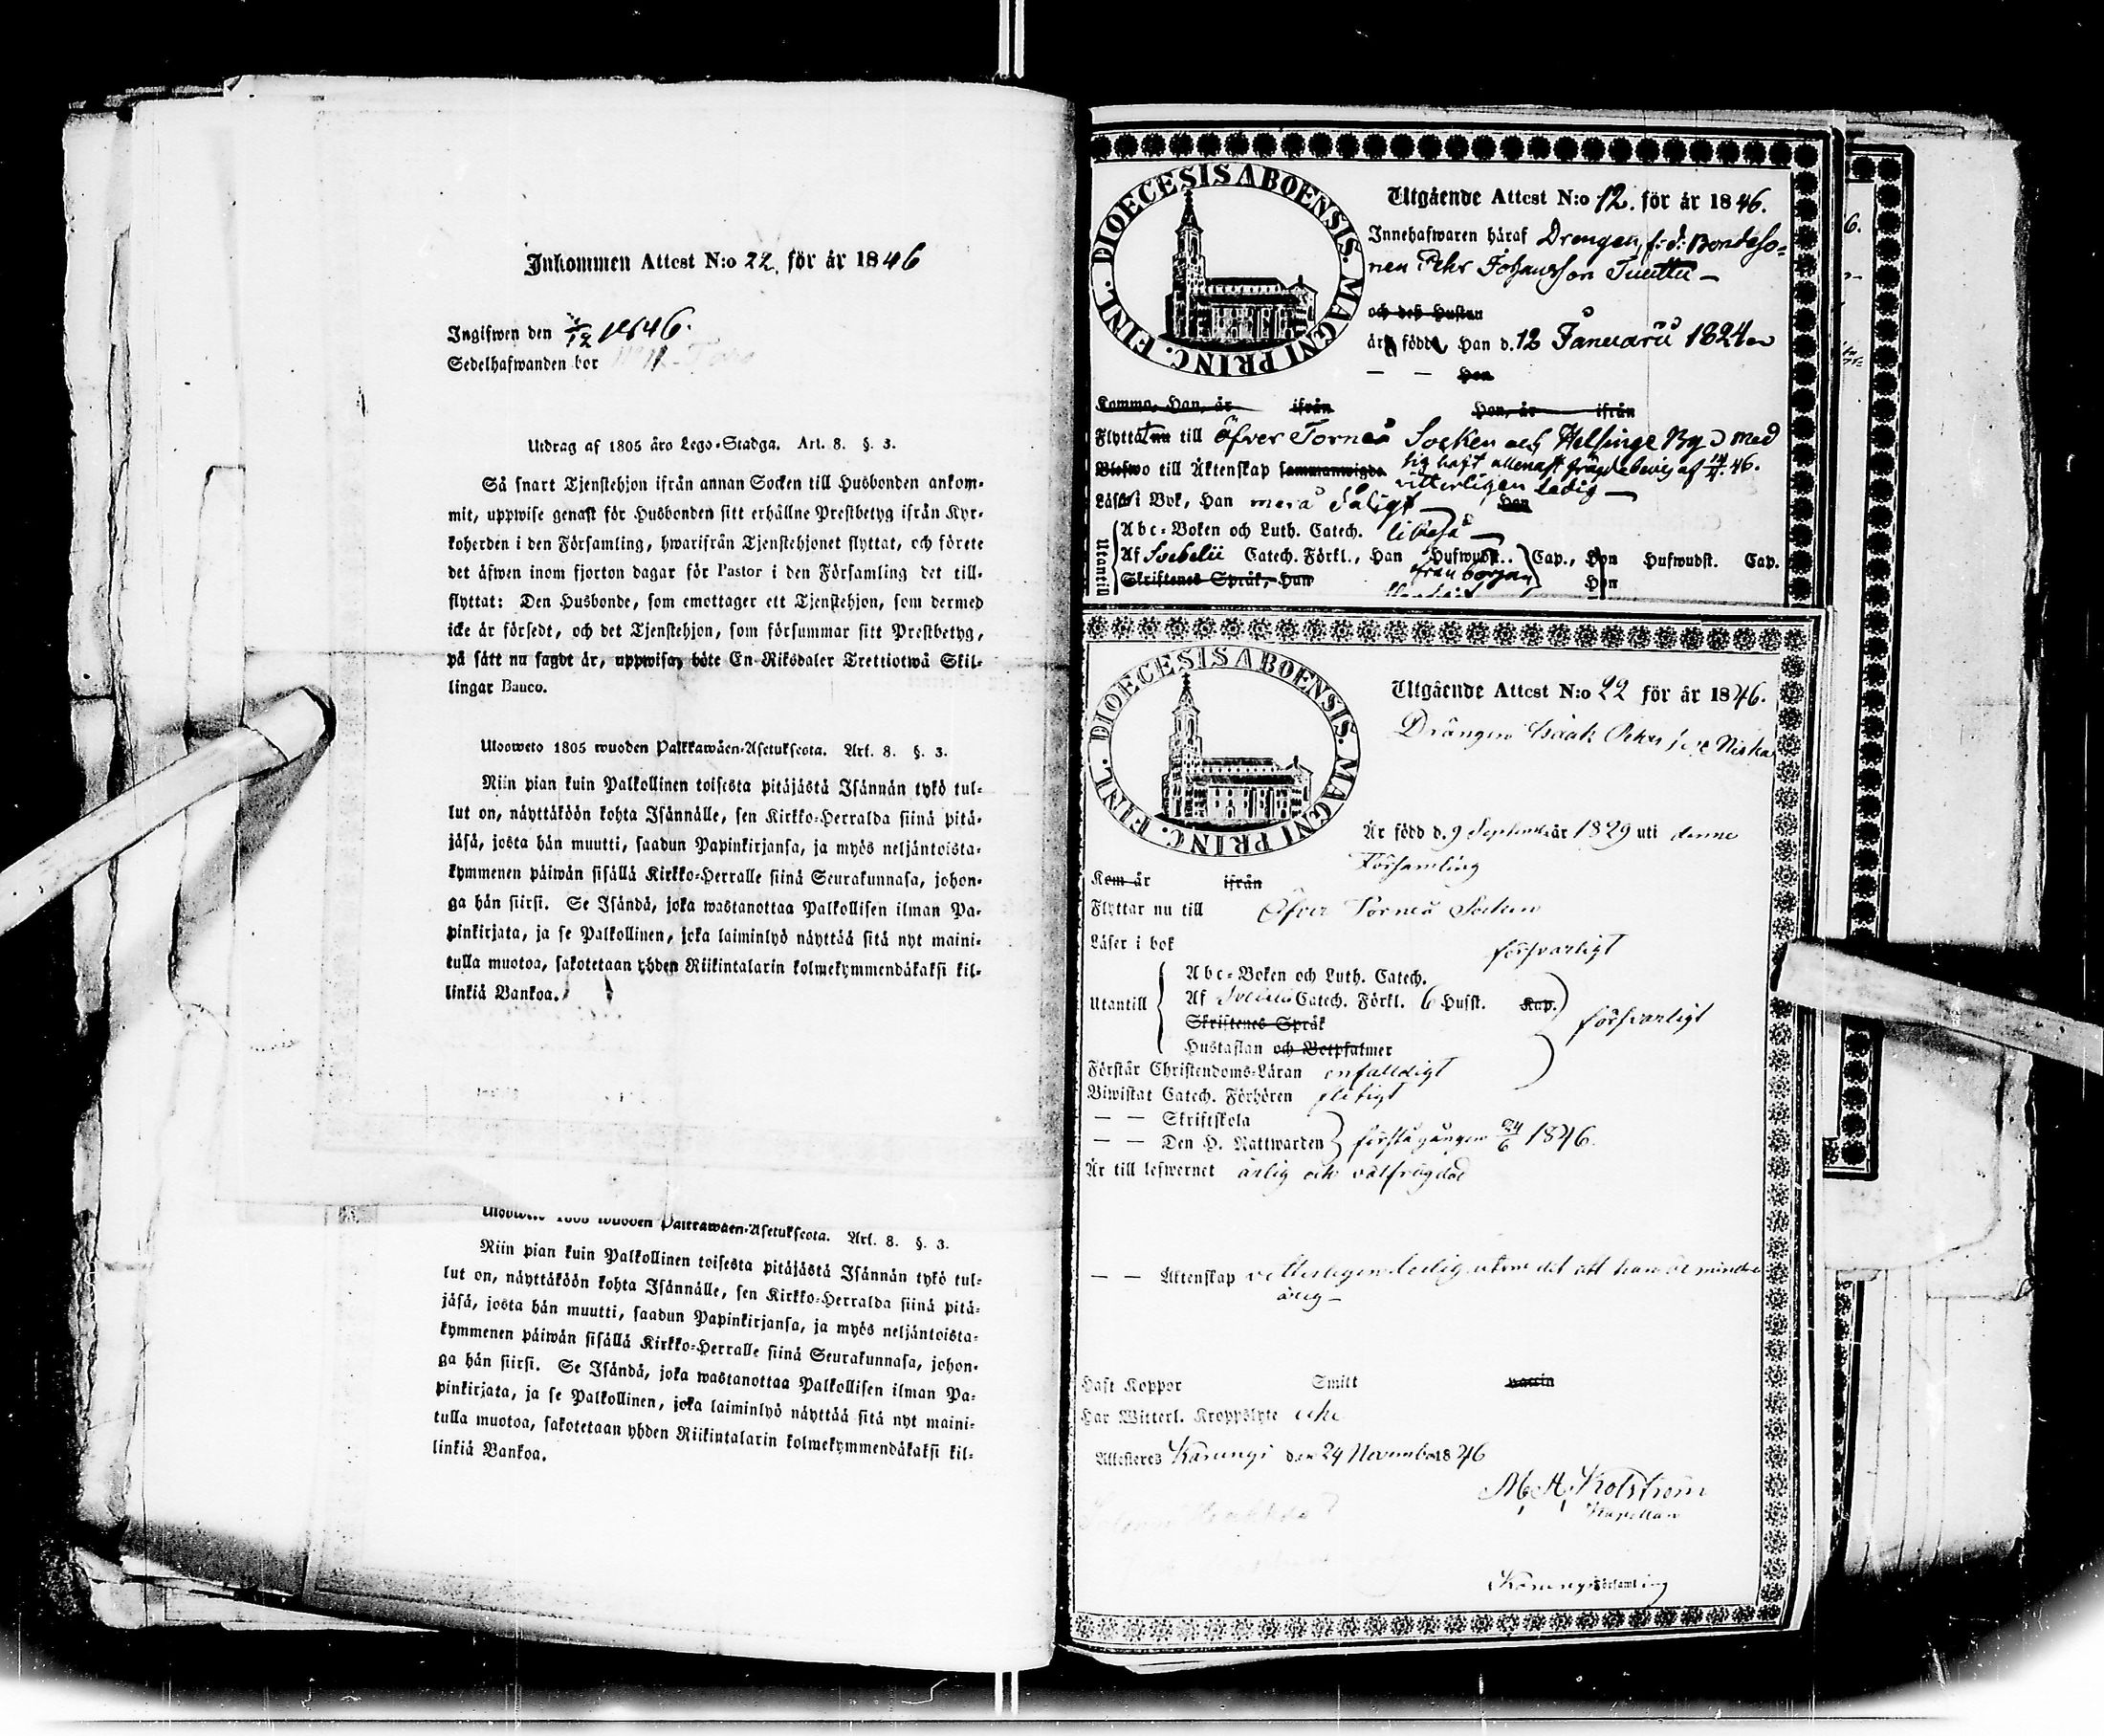 Inkommen Attest N:o 22. för år 1846
Ingifwen den 1/12 1846.
Sedelhafwanden bor
Utdrag af 1805 års Lego-Stadga. Art. 8. §. 3.
Så snart Tjenstehjon ifrån annan Socken till Husbonden ankom-
mit, uppwise genast för Husbonden sitt erhållne Prestbetyg ifrån Kyr-
koherden i den Församling, hwarifrån Tjenstehjonet flyttat, och förete
det äfwen inom fjorton dagar för Pastor i den Församling det till-
flyttat: Den Husbonde, som emottager ett Tjenstehjon, som dermed
icke är försedt, och det Tjenstehjon, som försummar sitt Prestbetyg,
på sätt nu sagdt är, uppwisa, böte En Riksdaler Trettiotwå Skil-
lingar Banco.
Ulosweto 1805 wuoden Palkkawäen-Asetuksesta. Art. 8. §. 3.
Niin pian kuin Palkollinen toisesta pitäjästä Isännän tykö tul-
lut on, näyttäköön kohta Isännälle, sen Kirkko-Herralda siinä pitä-
jäsä, josta hän muutti, saadun Papinkirjansa, ja myös neljäntoista-
kymmenen päiwän sisällä Kirkko-Herralle siinä Seurakunnasa, johon-
ga hän siirsi. Se Isändä, joka wastanottaa Palkollisen ilman Pa-
pinkirjata, ja se Palkollinen, joka laiminlyö näyttää sitä nyt maini-
tulla muotoa, sakotetaan yhden Riikintalarin kolmekymmendäkaksi kil-
linkiä Bankoa.
Ulosweto 1805 wuoden Palkkawäen-Asetuksesta. Art. 8. §. 3.
Niin pian kuin Palkollinen toisesta pitäjästä Isännän tykö tul-
lut on, näyttäköön kohta Isännälle, sen Kirkko-Herralda siinä pitä-
jäsä, josta hän muutti, saadun Papinkirjansa, ja myös neljäntoista-
kymmenen päiwän sisällä Kirkko-Herralle siinä Seurakunnasa, johon-
ga hän siirsi. Se Isändä, joka wastanottaa Palkollisen ilman Pa-
pinkirjata, ja se Palkollinen, joka laiminlyö näyttää sitä nyt maini-
tulla muotoa, sakotetaan yhden Riikintalarin kolmekymmendäkaksi kil-
linkiä Bankoa.
DIOECESIS ABOENSIS. MAGNI PRINC. FINL.
Utgående Attest N:o 12. för år 1846.
Innehafwaren häraf Drengen, f. d. Bondeso-
nen Pehr Johansson
och deß Hustru
äro födde, Han d. 12 Januarii 1824
Hon
Komma, Han, år ifrån Hon, år ifrån
Flyttat nu till Öfver Torneå Socken och Helsinge By med
Blefwo till Äktenskap sammanwigde
vitterligen ledig
Läser i Bok, Han Hon
Utantill
Abc-Boken och Luth. Catech. likaså
Af Svebelii Catech. Förkl., Han Hufwudst. Cap., Hon Hufwudst. Cap.
från början
Skriftenes Språk, Han Hon
DIOECESIS ABOENSIS. MAGNI PRINC. FINL.
Utgående Attest N:o 22 för år 1846.
Drängen Isaak Niska
Är född d. 9 September 1829 uti denne
Församling
Kom år ifrån
Flyttar nu till Öfver Torneå Socken
Läser i bok försvarligt
Utantill
Abc-Boken och Luth. Catech.
Af Svebelii Catech. Förkl. 6 Hufst. Kap.
Skriftenes Språk försvarligt
Hustaflan och Botpsalmer
Förstår Christendoms-Läran enfalldigt
Biwistat Catech. Förhören flitigt
— — Skriftskola
— — Den H. Nattwarden första gången 24/6 1846.
Är till lefwernet ärlig och välfrägdad
— — Äktenskap vitterligen ledig utom det att han är minder
årig —
Haft Koppor Smitt vaccin
Har Witterl. Kroppslyte icke
Attesteras Karungi den 24 November 1846
Kapellan
Karungi Församling